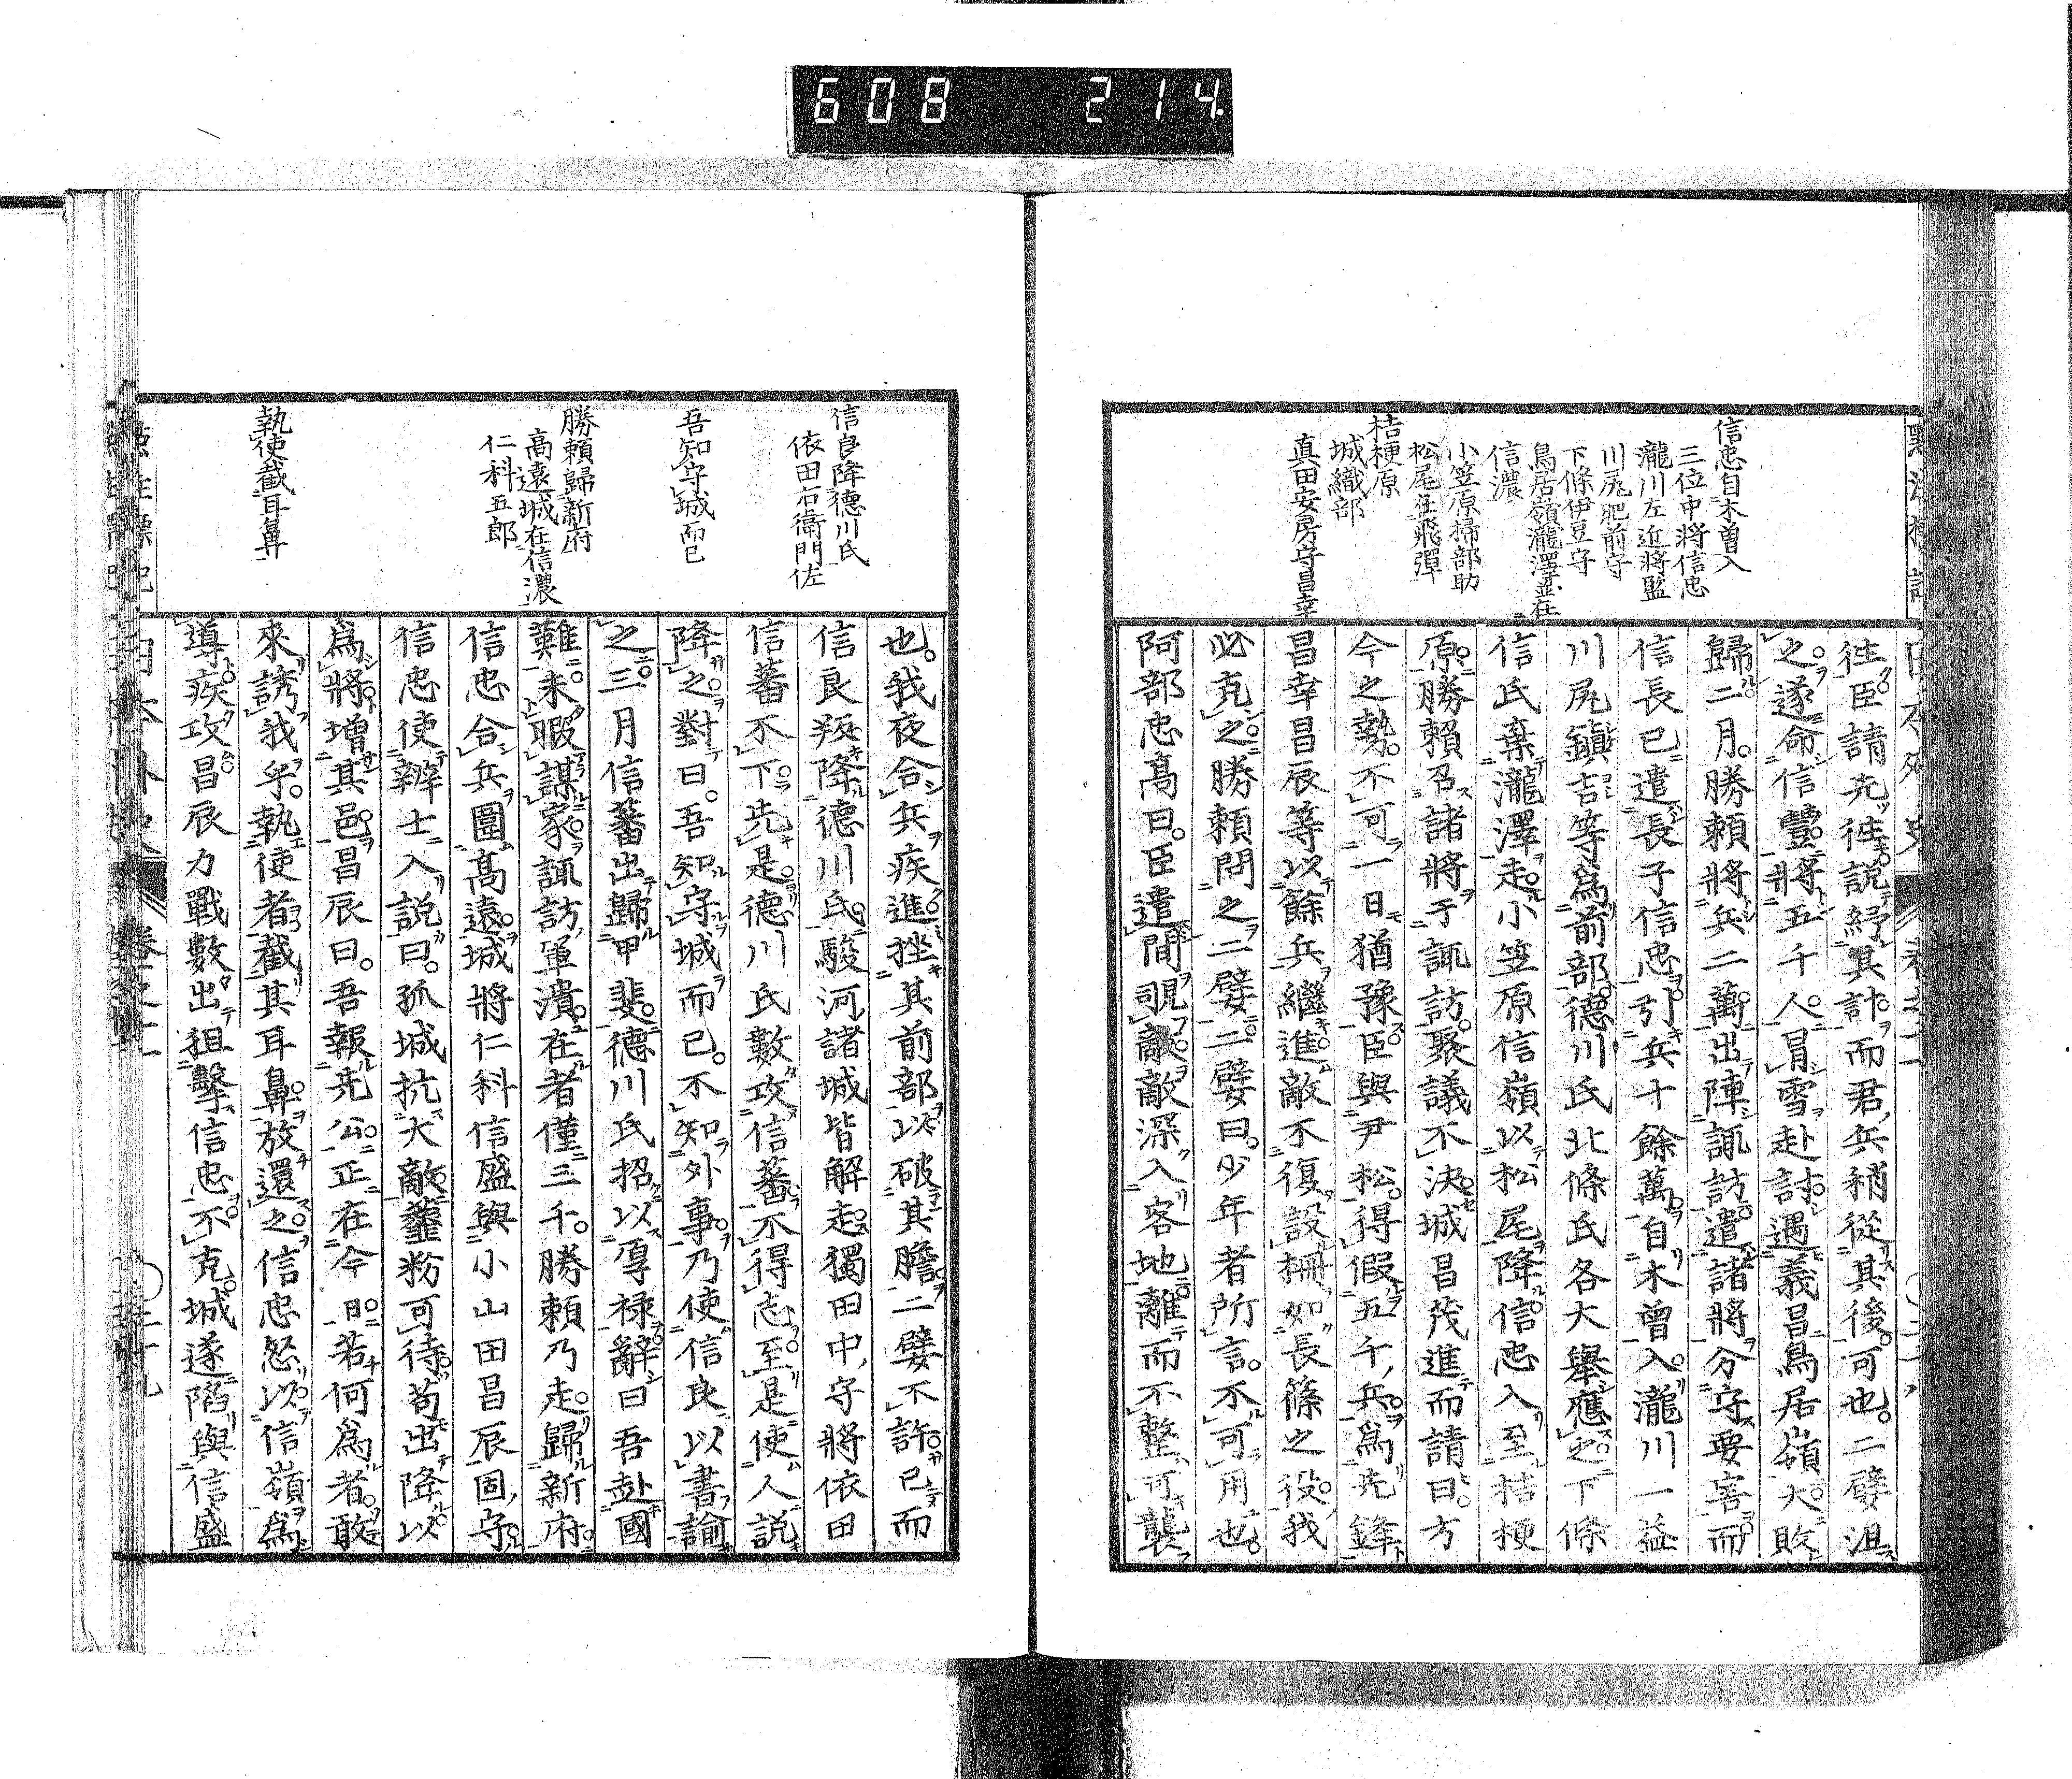 608 214
信忠自木曽入
三位中將信忠
瀧川左近將監
川尻肥前守
下條伊豆守
鳥居嶺瀧澤並在
信濃
小笠原掃部助
松尾在飛彈
桔梗原
城織部
真田安房守昌幸
往臣請先往說紓其計而君兵稍從其後可也二嬖沮
之遂命信豐將五千人冒雪赴討遇義昌鳥居嶺大敗
歸二月勝賴將兵二萬出陣諏訪遣諸將分守要害而
信長已遣長子信忠引兵十餘萬自木曾入瀧川一益
川尻鎮吉等為前部德川氏北條氏各大舉應之下條
信氏棄瀧澤走小笠原信嶺以松尾降信忠入至桔梗
原勝賴召諸將于諏訪聚議不決城昌茂進而請曰方
今之勢不可一日猶豫臣與尹松得假五千兵為先鋒
昌幸昌辰等以餘兵繼進敵不復設柵如長篠之役我
必克之勝賴問之二嬖二嬖曰少年者所言不可用也
阿部忠高曰臣遣間覘敵敵深入客地離而不整可襲
信良降德川氏
依田右衛門佐
吾知守城而已
勝賴歸新府
高遠城在信濃
仁科五郎
執使截耳鼻
也我夜合兵疾進挫其前部以破其膽二嬖不許已而
信良叛降德川氏駿河諸城皆解走獨田中守將依田
信蕃不下先是德川氏數攻信蕃不得志至是使人說
降之對曰吾知守城而已不知外事乃使信良以書諭
之三月信蕃出歸甲斐德川氏招以厚祿辭曰吾赴國
難未暇謀家諏訪軍潰在者僅三千勝賴乃走歸新府
信忠合兵圍高遠城將仁科信盛與小山田昌辰固守
信忠使辨士入說曰孤城抗大敵虀粉可待苟出降以
為將增其邑昌辰曰吾報先公正在今日若何為者敢
來誘我乎執使者截其耳鼻放還之信忠怒以信嶺為
導疾攻昌辰力戰數出狙擊信忠不克城遂陷與信盛